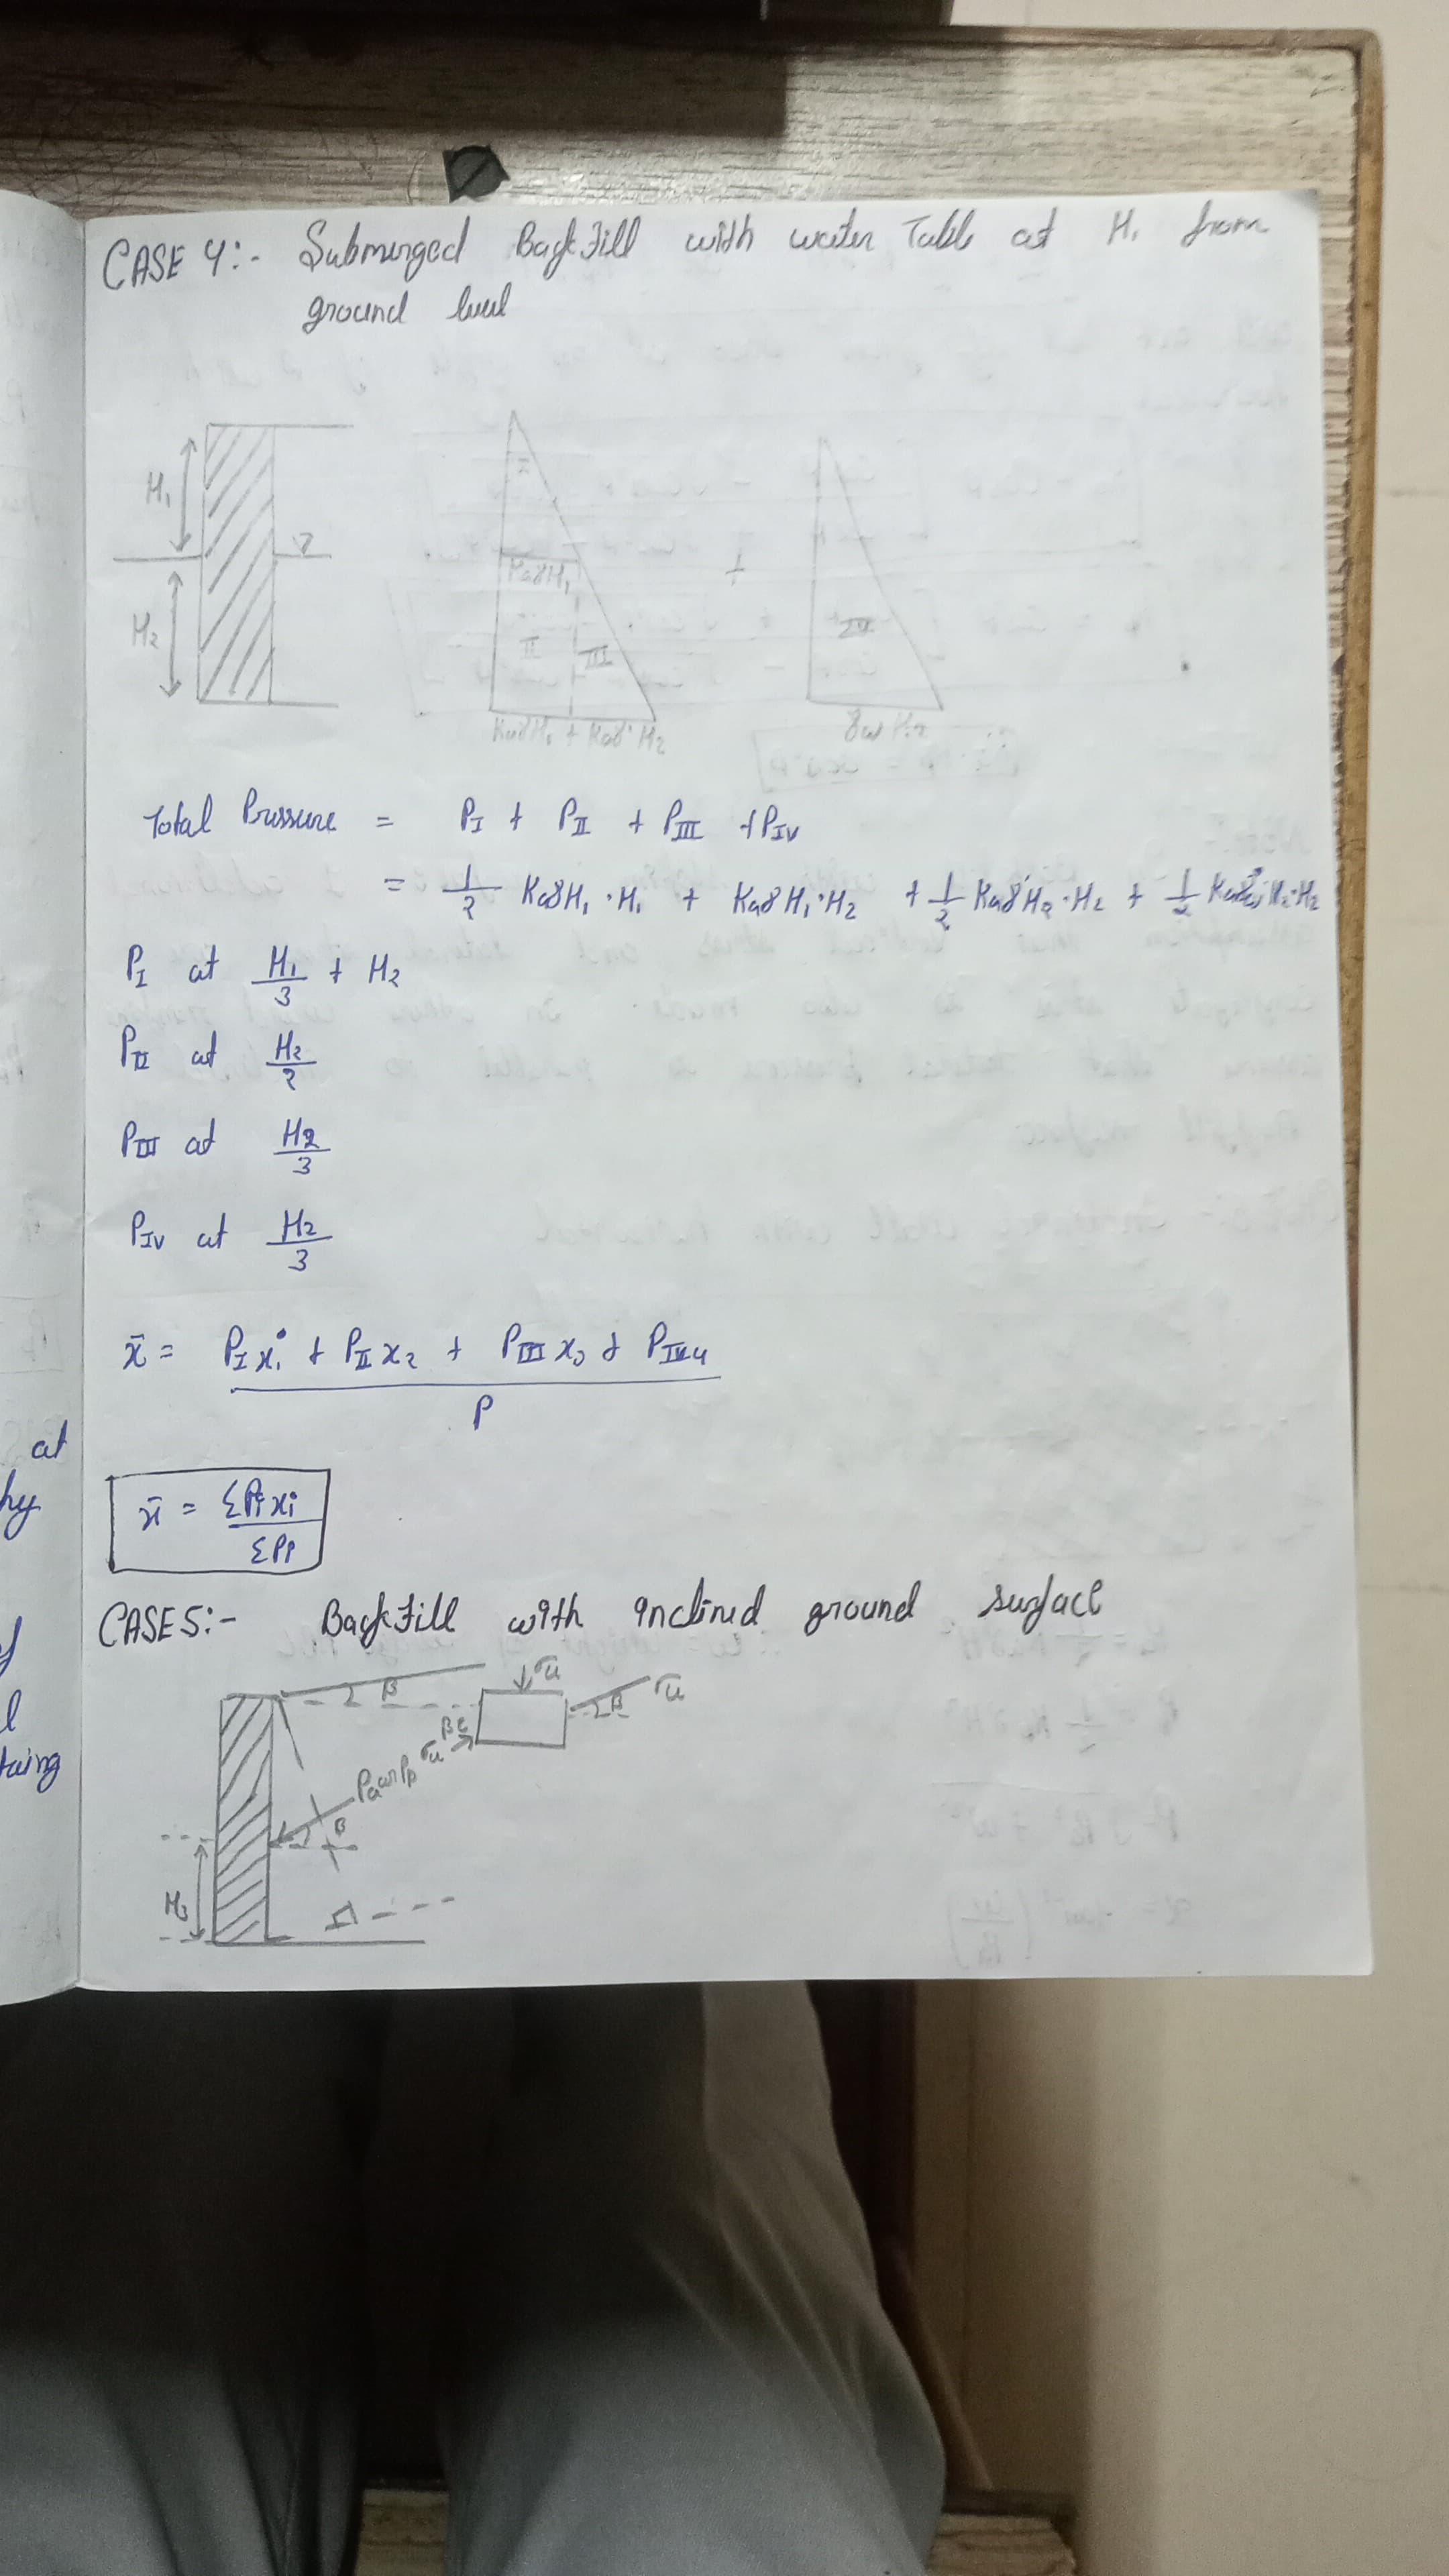 CASE 4:- Submerged Backfill with water Table at H₁ from
ground level
H₁
H₂
I
KaγH₁
II
III
KaγH₁ + Kaγ' H₂
+
IV
γw H₂
Total Pressure = P_I + P_II + P_III + P_IV
= 1/2 KaγH₁·H₁ + KaγH₁·H₂ + 1/2 Kaγ'H₂·H₂ + 1/2 Kaγw H₂·H₂
P_I at H₁/3 + H₂
P_II at H₂/2
P_III at H₂/3
P_IV at H₂/3
x̄ = P_I x₁ + P_II x₂ + P_III x₃ + P_IV x₄
P
x̄ = ΣPi xi
ΣPi
CASE 5:- Backfill with inclined ground surface
β
σu
β
σu
σu
β
Pa or Pp
β
H/3
at
by